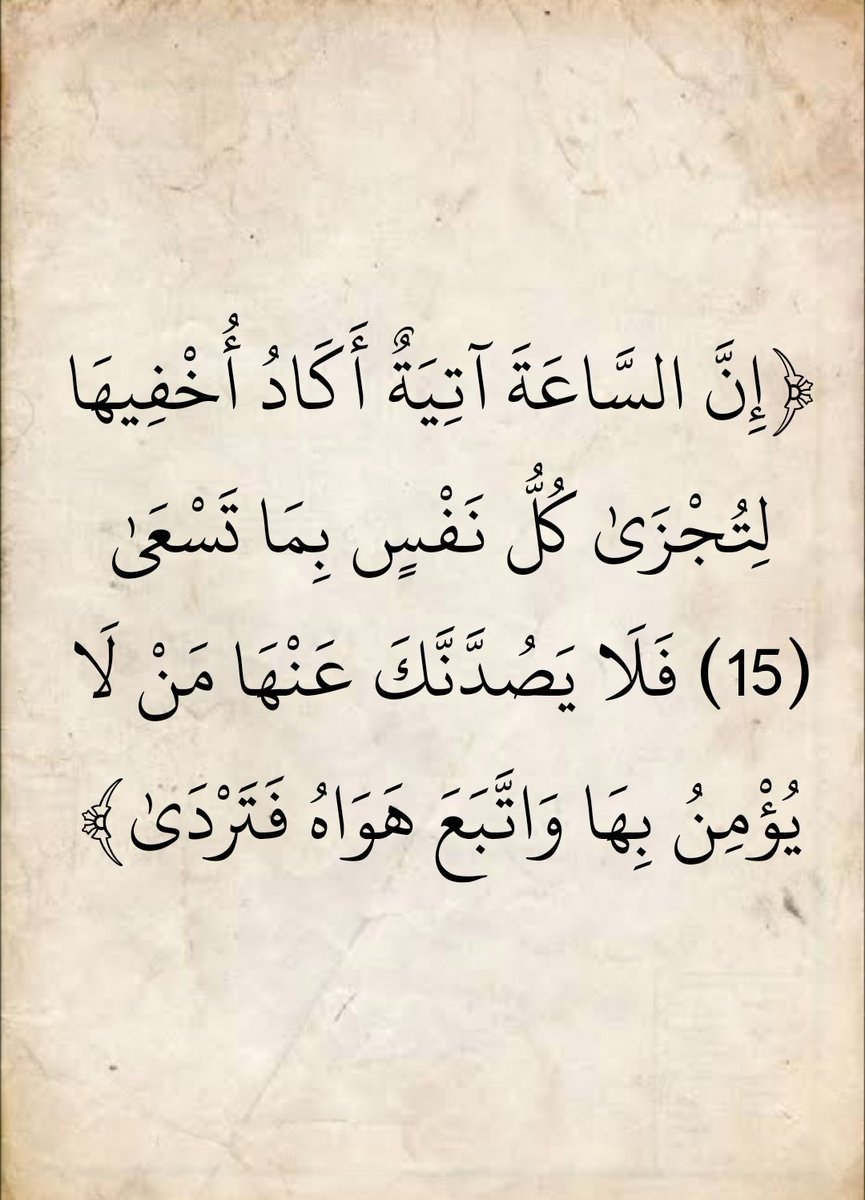 ﴿إِنَّ السَّاعَةَ آتِيَةٌ أَكَادُ أُخْفِيهَا
لِتُجْزَىٰ كُلُّ نَفْسٍ بِمَا تَسْعَىٰ
(15) فَلَا يَصُدَّنَّكَ عَنْهَا مَنْ لَا
يُؤْمِنُ بِهَا وَاتَّبَعَ هَوَاهُ فَتَرْدَىٰ﴾